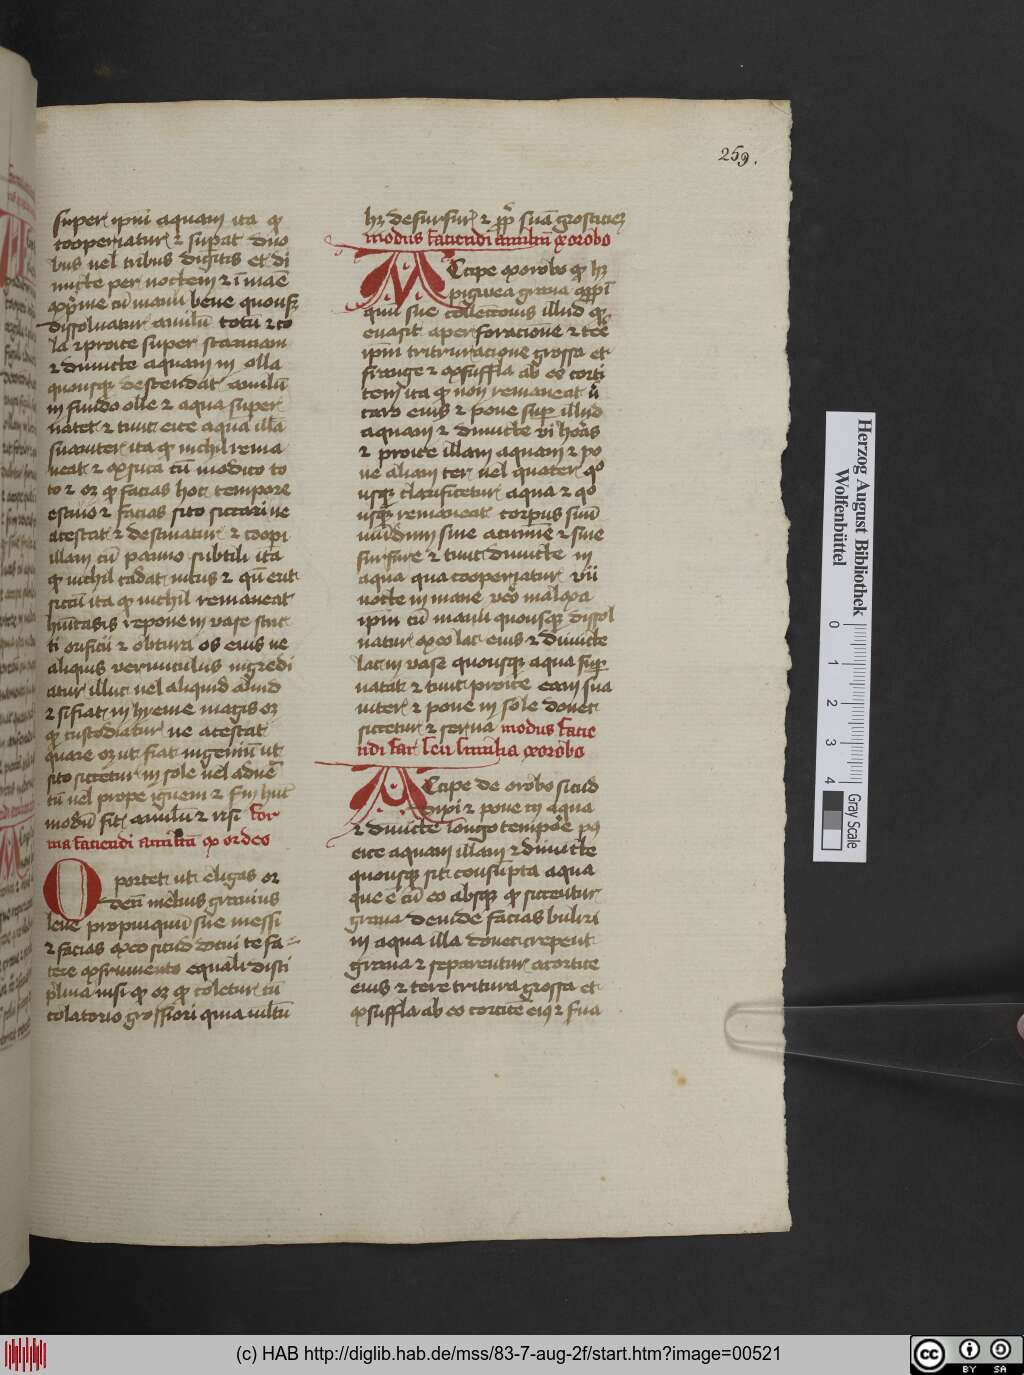 259.
super ipm̄ aquam ita qꝫ
cooperiatur ⁊ suꝑat duo
bus uel tribus digitis et di
micte per noctem ⁊ ī manē
exp̄me cū manu bene quousqꝫ
dissoluatur amilū totū ⁊ co
la ⁊ proice super stanciam
⁊ dimicte aquam in olla
quousqꝫ descendat amilū
in fundo olle ⁊ aqua super
natet ⁊ tunc eice aqua illā
suauiter ita qꝫ nichil rema
neat ⁊ exsica cū modico to
to ⁊ oꝫ qꝫ facias hoc tempore
estiuo ⁊ facias sito siccari ne
acescat ⁊ destruatur ⁊ coopi
illam cū panno subtili ita
qꝫ nichil cadat intus ⁊ qn̄ erit
siccū ita qꝫ nichil remaneat
humitatis repone in uase stric
ti orificii ⁊ obtura os eius ne
aliquis vermiculus ingredi
atur illuc uel aliquid aliud
⁊ si fiat in hyeme magis oꝫ
qꝫ custodiatur ne acescat
quare oꝫ ut fiat ingeniū ut
sito siccetur in sole uel aduē
tū uel prope ignem ⁊ sm̄ hūc
modū fit amilū ⁊ risi for
ma faciendi amilum ex ordeo
Oportet ut eligas or
deū melius grauius
leue propinquū sue messi
⁊ facias exeo sicud docui te fa=
cere ex frumento equali disti
plina nisi qꝫ oꝫ qꝫ coletur cū
colatorio grossiori quia multū
hꝫ de furfur̄ ⁊ ꝓp̄ suā grosticieꝫ
modus faciendi amilū ex orobo
Accipe ex orobo qꝫ hꝫ
pigmea grana ꝓpī
quū sue collectionis illud qꝫ
euasit a perforacione ⁊ tere
ipm̄ trituracione grossa et
frange ⁊ exsuffla ab eo corti
cem ita qꝫ non remaneat ī
caro eius ⁊ pone suꝑ illud
aquam ⁊ dimicte vi horas
⁊ proice illam aquam ⁊ po
ne aliam ter uel quater qo
usqꝫ clarificetur aqua ⁊ qo
usqꝫ remaneat corpus suū
mūdum sine acumīe ⁊ sine
furfure ⁊ tunc dimicte in
aqua qua cooperiatur vii
nocte in mane vero malaxa
ipm̄ cū manu quousqꝫ dissol
uatur ex eo lac eius ⁊ dimicte
lac in uase quousqꝫ aqua suꝑ
natat ⁊ tunc proice eam sua
uiter ⁊ pone in sole donec
siccetur ⁊ serua modus facie
ndi far seu similia ex orobo
Accipe de orobo sicud
dixi ⁊ pone in aqua
⁊ dimicte longo tempore pꝰ
eice aquam illam ⁊ dimicte
quousqꝫ sit consūpta aqua
que ē cū eo absqꝫ qꝫ siccentur
grana deinde facias buliri
in aqua illa donec crepent
grana ⁊ separentur a cortice
eius ⁊ tere tritura grossa et
exsuffla ab eo corticē eiꝰ ⁊ fiua
Herzog August Bibliothek
Wolfenbüttel
0 1 2 3 4
Gray Scale
(c) HAB http://diglib.hab.de/mss/83-7-aug-2f/start.htm?image=00521
cc BY SA